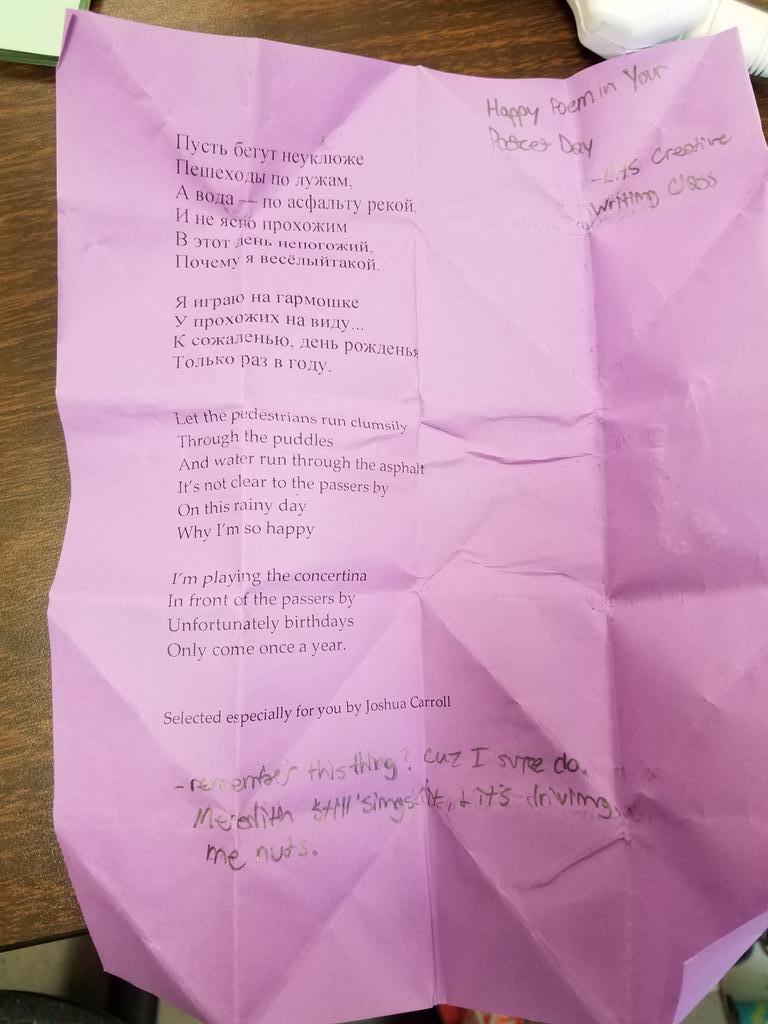 Happy Poem in Your
Pocket Day
-LHS Creative
Writing Class
Пусть бегут неуклюже
Пешеходы по лужам,
А вода — по асфальту рекой.
И не ясно прохожим
В этот день непогожий,
Почему я весёлыйтакой.
Я играю на гармошке
У прохожих на виду...
К сожаленью, день рожденья
Только раз в году.
Let the pedestrians run clumsily
Through the puddles
And water run through the asphalt
It's not clear to the passers by
On this rainy day
Why I'm so happy
I'm playing the concertina
In front of the passers by
Unfortunately birthdays
Only come once a year.
Selected especially for you by Joshua Carroll
- remember this thing? Cuz I sure do.
Meredith still sings it, & it's driving
me nuts.